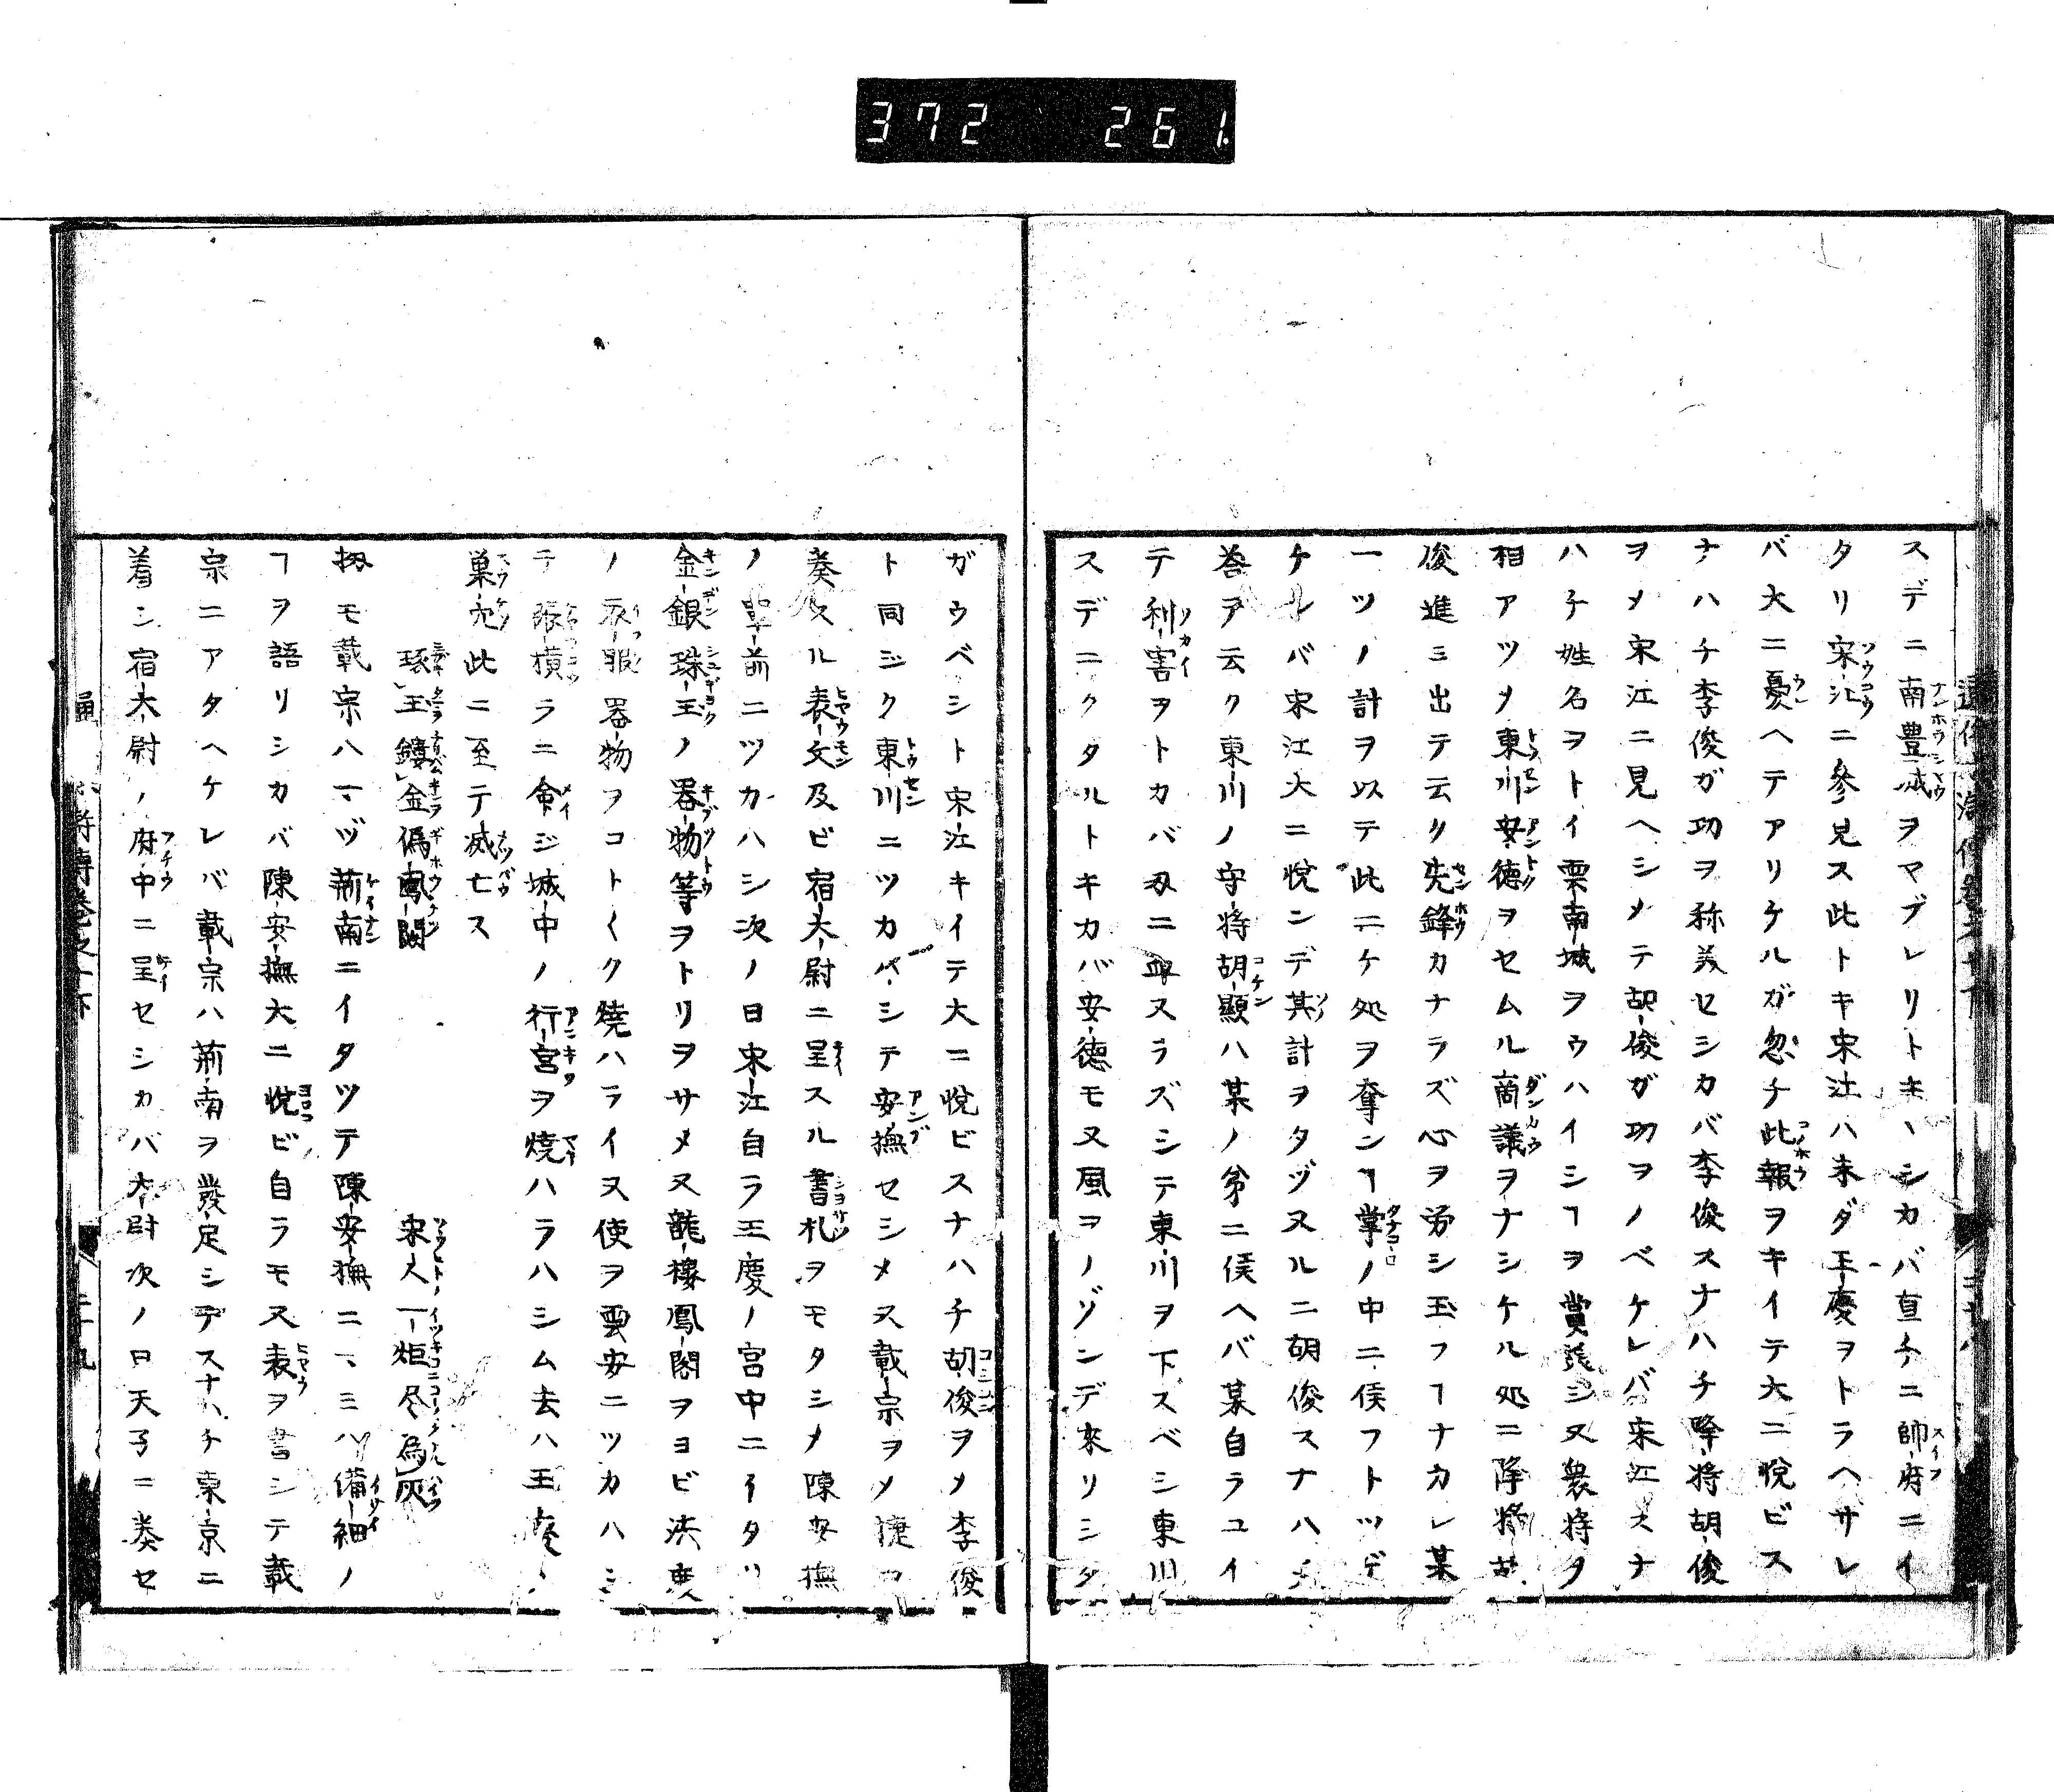 372 261
スデニ南豊城ヲマブレリトキヽシカバ直チニ帥府ニイ
タリ宋江ニ參見ス此トキ宋江ハ未ダ王慶ヲトラヘサレ
バ大ニ憂ヘテアリケルガ忽チ此報ヲキイテ大ニ悦ビス
ナハチ李俊ガ功ヲ称美セシカバ李俊スナハチ降将胡俊
ヲメ宋江ニ見ヘシメテ胡俊ガ功ヲノベケレバ宋江スナ
ハチ姓名ヲトイ雲南城ヲウハイシヿヲ賞シ又衆将タ
相アツメ東川安徳ヲセムル商議ヲナシケル処ニ降将胡
俊進ミ出テ云ク先鋒カナラズ心ヲ労シ玉フヿナカレ某
一ツノ計ヲ以テ此二ケ処ヲ奪ンヿ掌ノ中ニ侯フトツゲ
ケレバ宋江大ニ悦ンデ其計ヲタヅヌルニ胡俊スナハチ
答ヲ云ク東川ノ守将胡顯ハ某ノ弟ニ侯ヘバ某自ラユイ
テ利害ヲトカバ刄ニ血ヌラズシテ東川ヲ下スベシ東川
スデニクタルトキカバ安徳モ又風ヲノゾンデ來リシタ
ガウベシト宋江キイテ大ニ悦ビスナハチ胡俊ヲメ李俊
ト同ジク東川ニツカバシテ安撫セシメス戴宗ヲメ捷ヲ
奏スル表文及ビ宿大尉ニ呈スル書札ヲモタシメ陳安撫
ノ軍前ニツカハシ次ノ日宋江自ラ王慶ノ宮中ニイタリ
金銀珠玉ノ器物等ヲトリヲサメ又龍樓鳳閣ヲヨビ法度
ノ衣服器物ヲコト〱ク燒ハライ又使ヲ雲安ニツカハシ
テ張横ラニ命ジ城中ノ行宮ヲ燒ハラハシム去ハ王慶
巣穴此ニ至テ滅亡ス
琢王鏤金偽鳳闕 宋人一炬尽為灰
扨モ戴宗ハ一ヅ荊南ニイタツテ陳安撫ニ、ミハ備細ノ
ヿヲ語リシカバ陳安撫大ニ悦ビ自ラモ又表ヲ書シテ戴
宗ニアタヘケレバ戴宗ハ荊南ヲ發足シテスナハチ東京ニ
着シ宿大尉ノ府中ニ呈セシカバ大尉次ノ日天子ニ奏セ